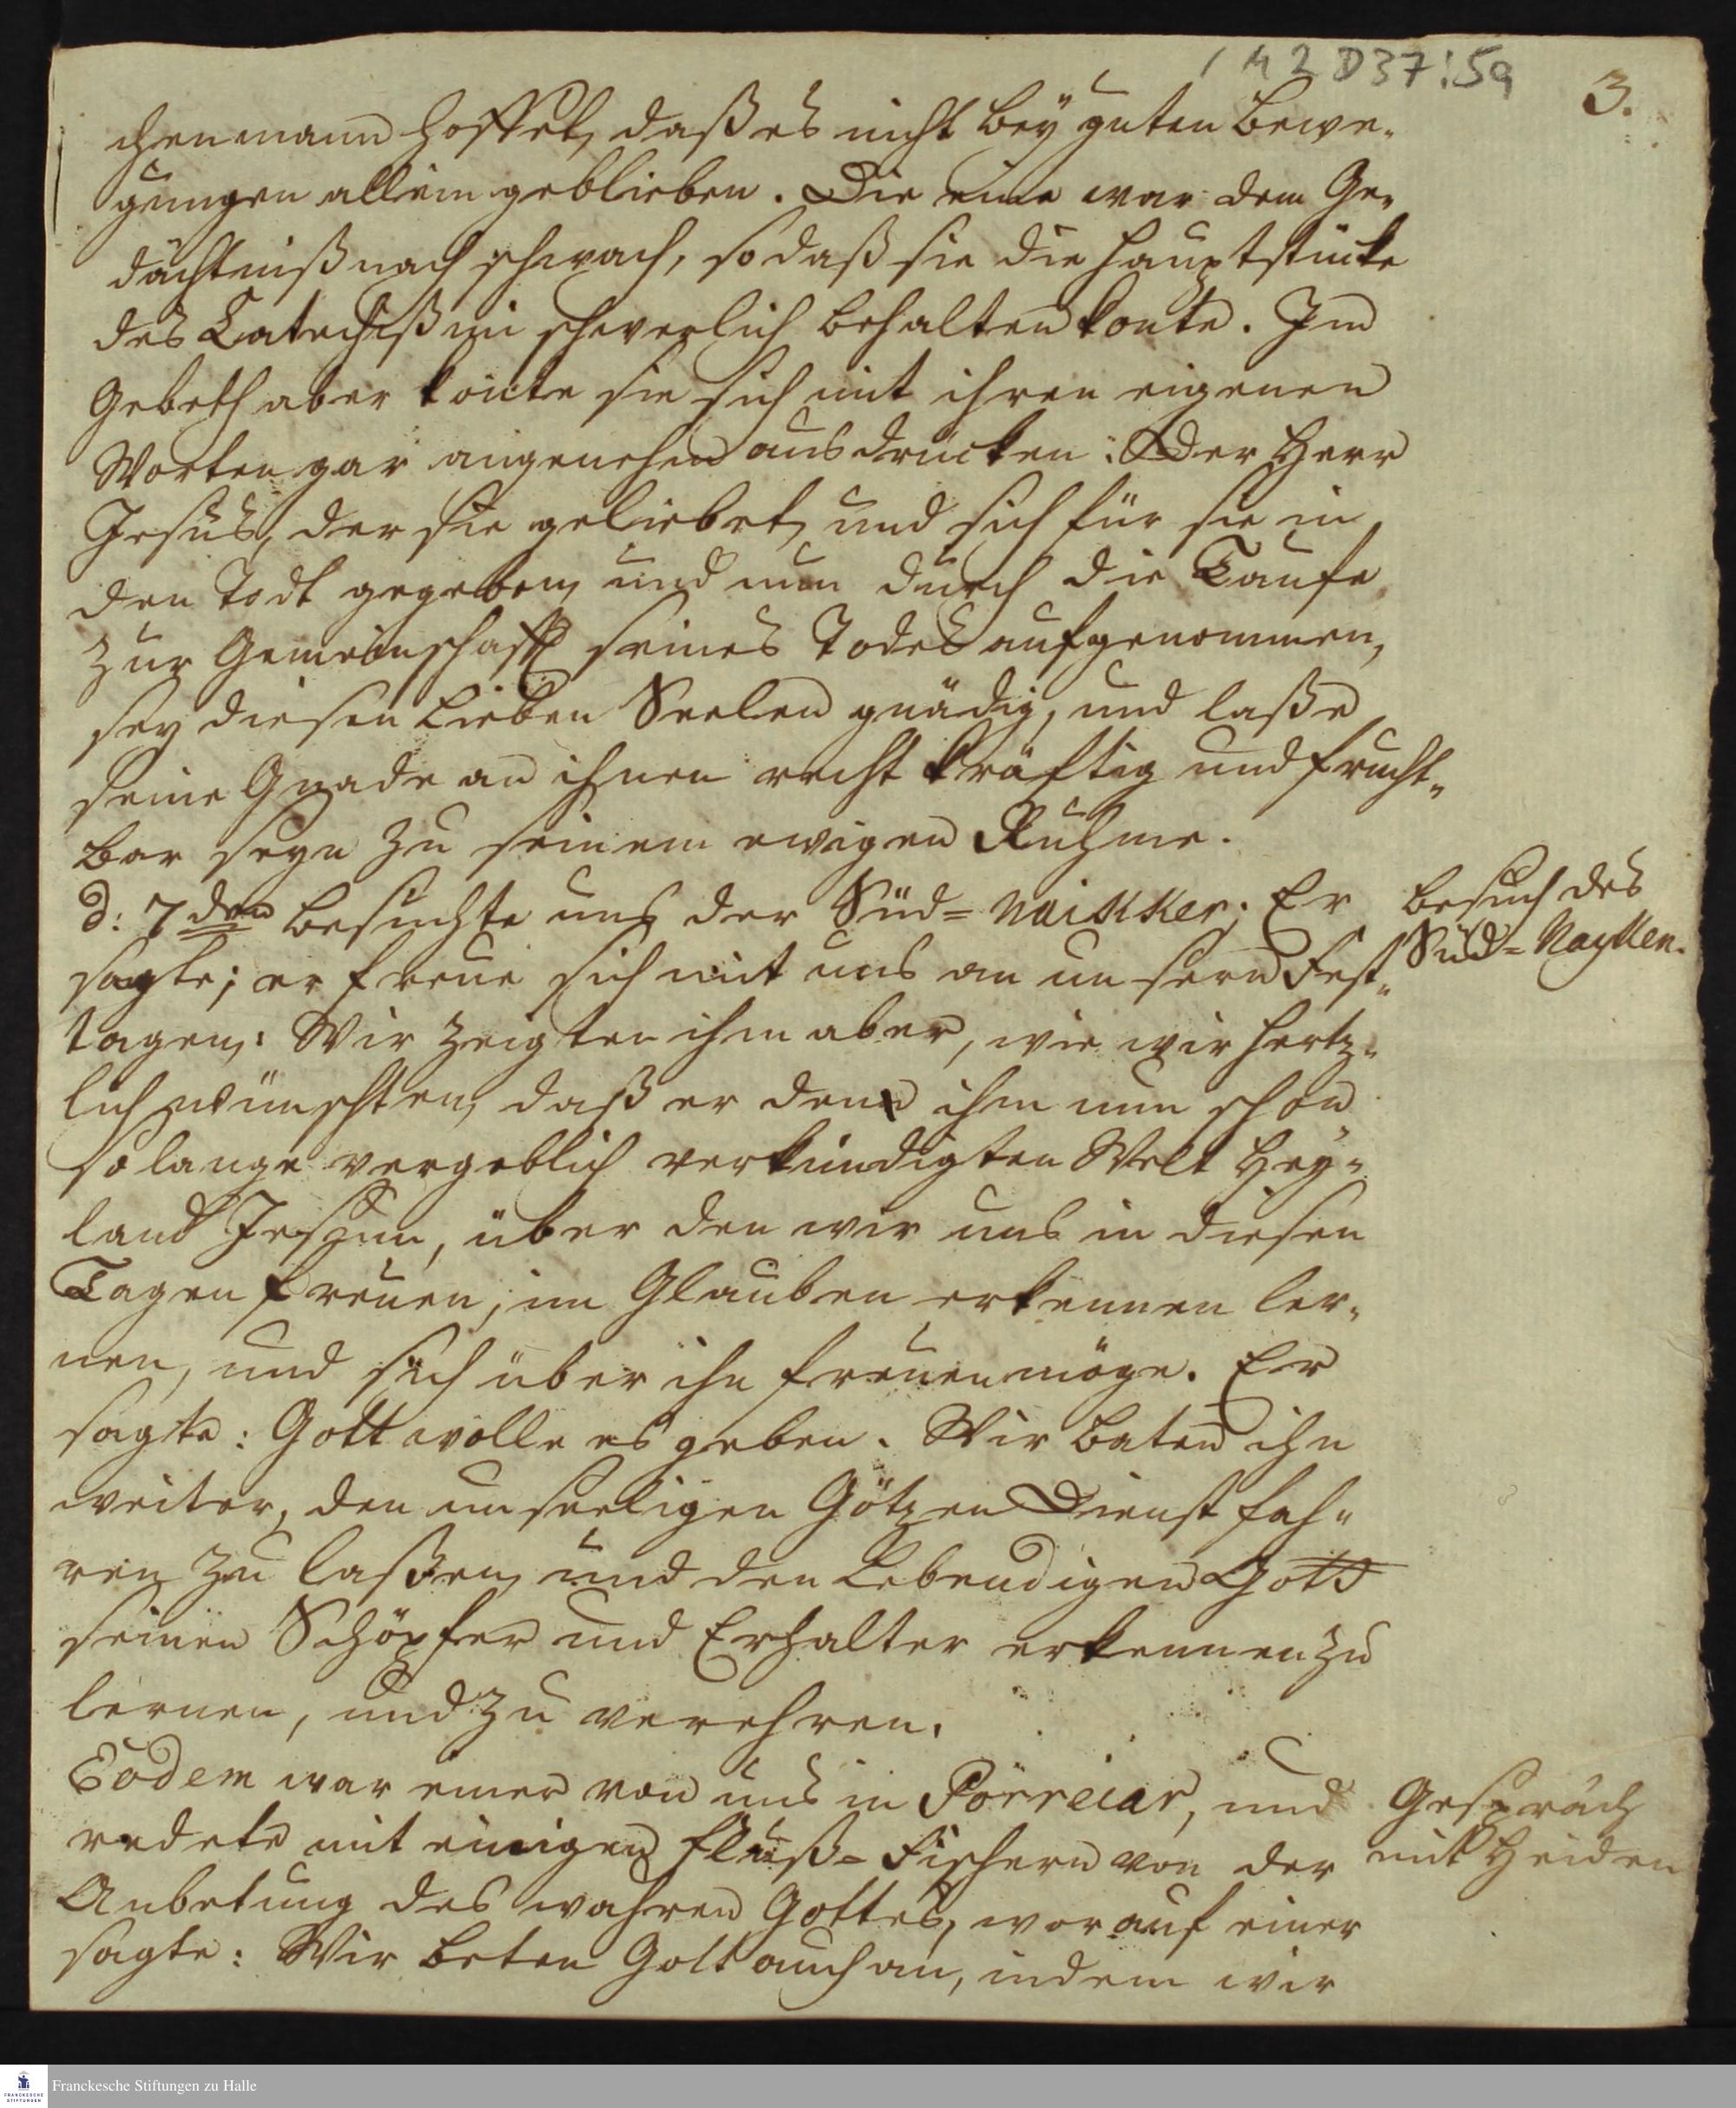 1 M 2 D 37 : 5a
3.
chenmann hoffet, daß es nicht bey guten Bewe-
gungen allein geblieben. Die eine war dem Ge-
dächtniß nach schwach, so daß sie die Hauptstücke
des Catechißmi schwerlich behalten konte. Im
Gebeth aber konte sie sich mit ihren eigenen
Worten gar angenehm ausdrücken: Der Herr
Jesus, der sie geliebet, und sich für sie in
den Todt gegeben, und nun durch die Taufe
zur Gemeinschafft seines Todes aufgenommen,
sey diesen lieben Seelen gnädig, und laße
seine Gnade an ihnen recht kräftig und frucht-
bar seyn zu seinem ewigen Ruhme.
d: 7den besuchte uns der Süd=Naikker; Er
sagte; er freue sich mit uns an unsern Fest-
tagen: Wir zeigten ihm aber, wie wir hertz-
lich wünschten, daß er den ihm nun schon
so lange vergeblich verkündigten Welt Hey-
land Jesum, über den wir uns in diesen
Tagen freuen, im Glauben erkennen ler-
nen, und sich über ihn freuen möge. Er
sagte: Gott wolle es geben. Wir baten ihn
weiter, den unseeligen Götzen Dienst fah-
ren zu laßen, und den Lebendigen Gott
seinen Schöpfer und Erhalter erkennen zu
lernen, und zu verehren.
Eodem war einer von uns in Pörreiar, und
redete mit einigen Fluß=Fischern von der
Anbetung des wahren Gottes, worauf einer
sagte: Wir beten Gott auch an, indem wir
Besuch des
Süd=Naykken.
Gespräch
mit Heiden
Franckesche Stiftungen zu Halle
FRANCKESCHE
STIFTUNGEN